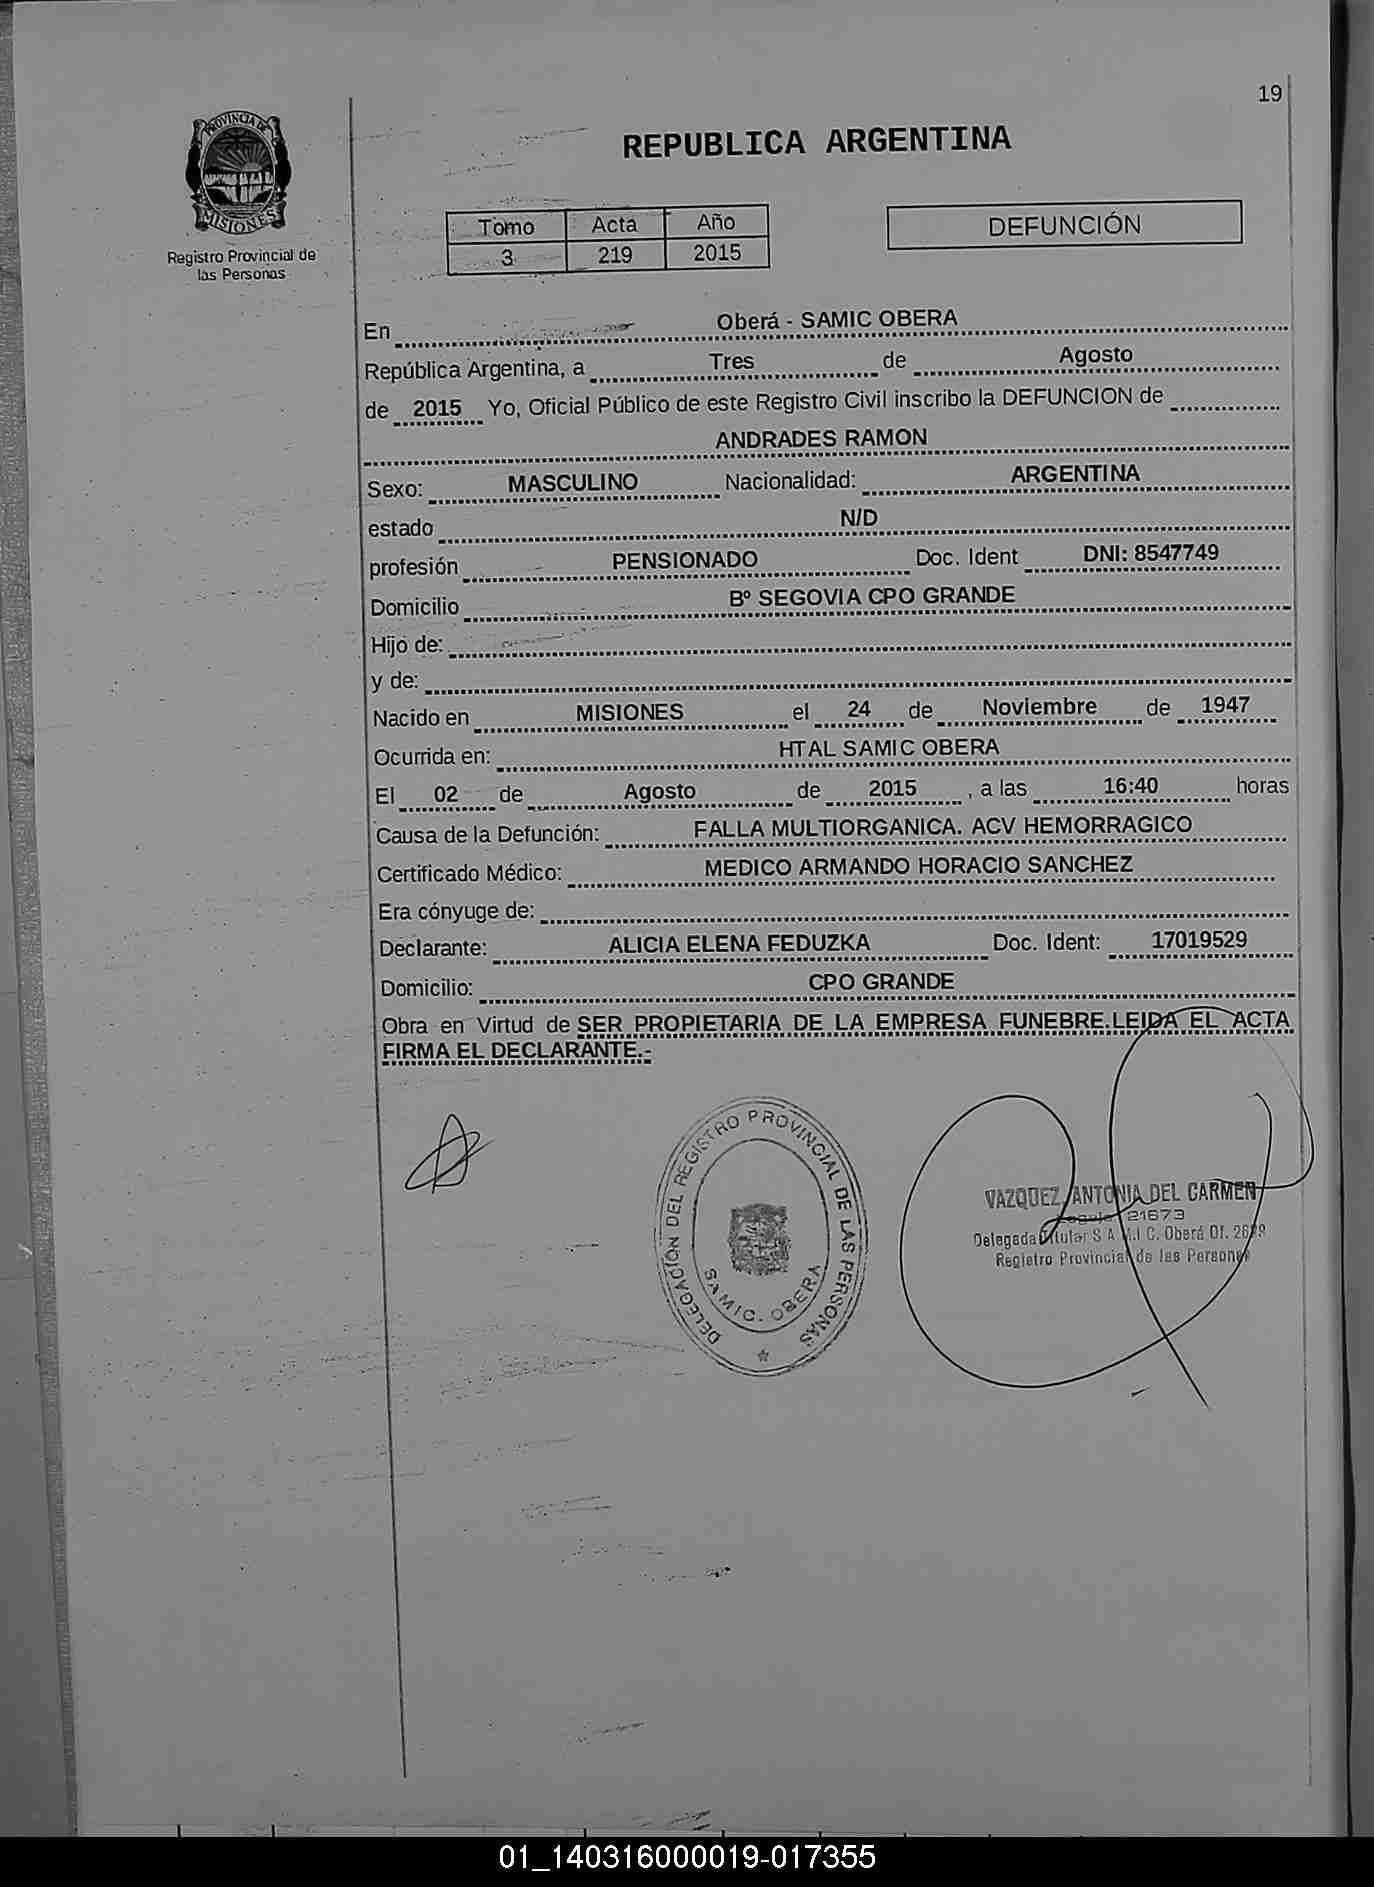 19
PROVINCIA DE
MISIONES
Registro Provincial de
las Personas
REPUBLICA ARGENTINA
Tomo Acta Año
3 219 2015
DEFUNCIÓN
En Oberá - SAMIC OBERA
República Argentina, a Tres de Agosto
de 2015 Yo, Oficial Público de este Registro Civil inscribo la DEFUNCION de
ANDRADES RAMON
Sexo: MASCULINO Nacionalidad: ARGENTINA
estado N/D
profesión PENSIONADO Doc. Ident DNI: 8547749
Domicilio Bº SEGOVIA CPO GRANDE
Hijo de:
y de:
Nacido en MISIONES el 24 de Noviembre de 1947
Ocurrida en: HTAL SAMIC OBERA
El 02 de Agosto de 2015 , a las 16:40 horas
Causa de la Defunción: FALLA MULTIORGANICA. ACV HEMORRAGICO
Certificado Médico: MEDICO ARMANDO HORACIO SANCHEZ
Era cónyuge de:
Declarante: ALICIA ELENA FEDUZKA Doc. Ident: 17019529
Domicilio: CPO GRANDE
Obra en Virtud de SER PROPIETARIA DE LA EMPRESA FUNEBRE.LEIDA EL ACTA
FIRMA EL DECLARANTE.-
DELEGACIÓN DEL REGISTRO PROVINCIAL DE LAS PERSONAS
SAMIC. OBERA
VAZQUEZ, ANTONIA DEL CARMEN
21673
Delegada Titular S.A.M.I.C. Oberá Of.
Registro Provincial de las Personas
01_140316000019-017355